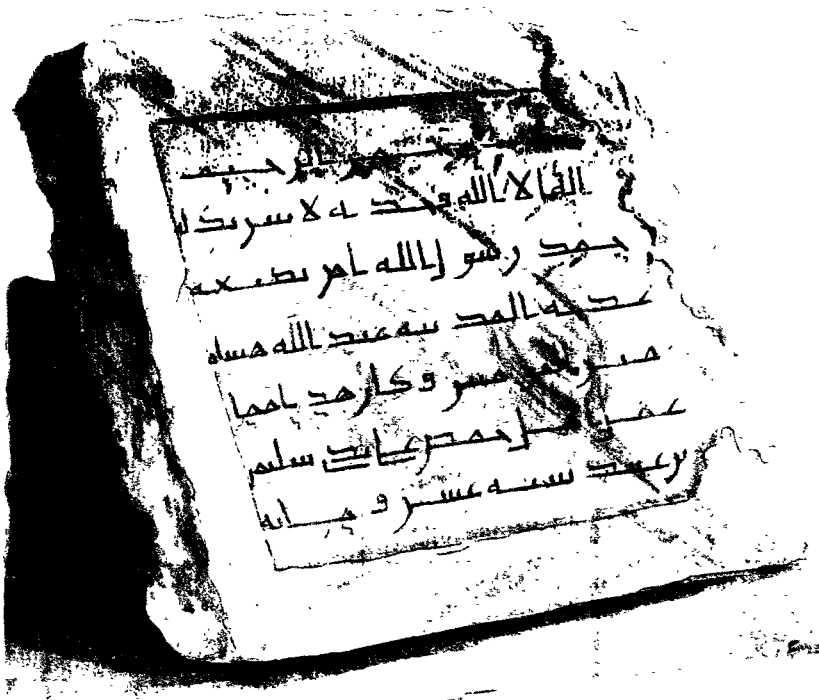 الرحمن الرحيم
اله الا الله وحده لا شريك له
محمد رسول الله امر بصنعه
هذه المدينه عبد الله هشام
امير المؤمنين وكان هذا مما
عمل اهل حمص على يدي سليمن
بن عبيد سنه عشر ومايه